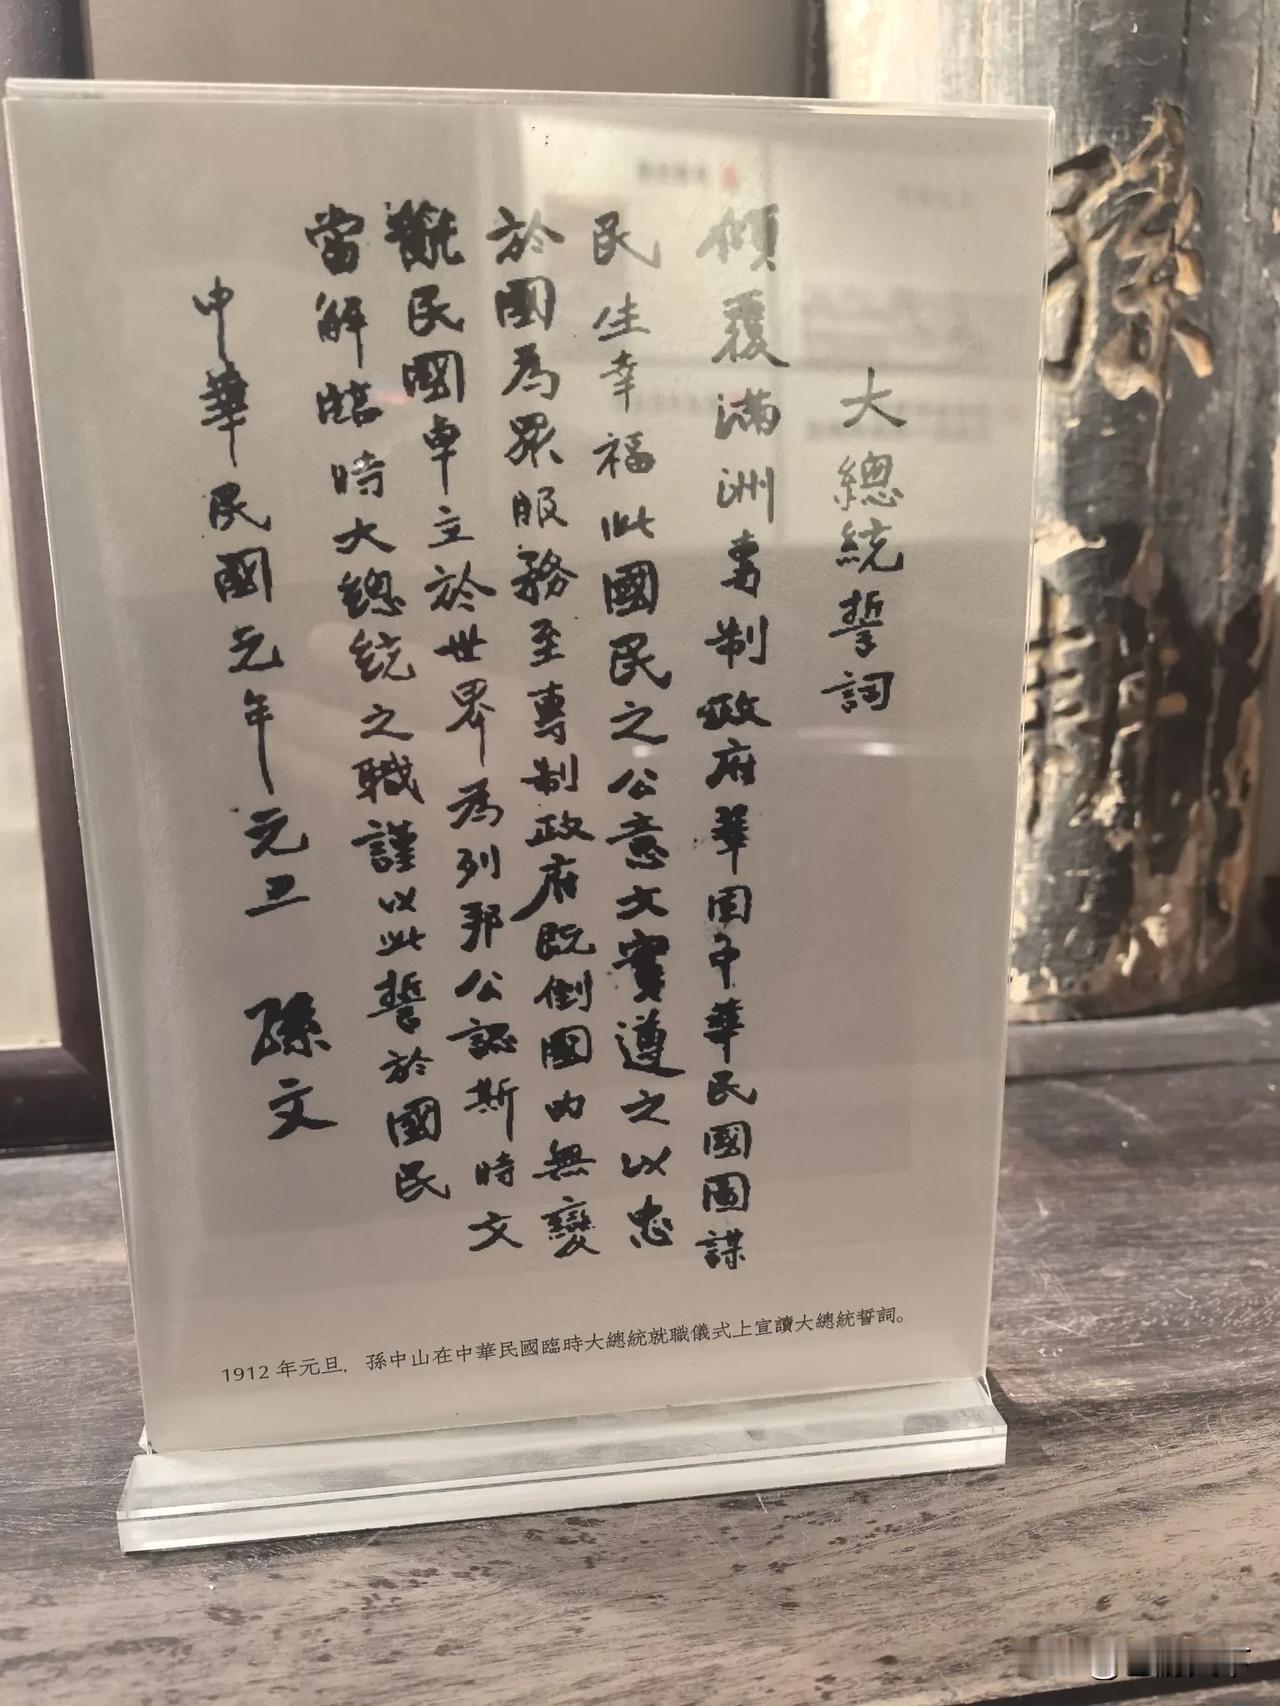 大總統誓詞
傾覆滿洲專制政府鞏固中華民國圖謀
民生幸福此國民之公意文實遵之以忠
於國為眾服務至專制政府既倒國內無變
亂民國卓立於世界為列邦公認斯時文
當解臨時大總統之職謹以此誓於國民
中華民國元年元旦 孫文
1912年元旦，孫中山在中華民國臨時大總統就職儀式上宣讀大總統誓詞。
孫